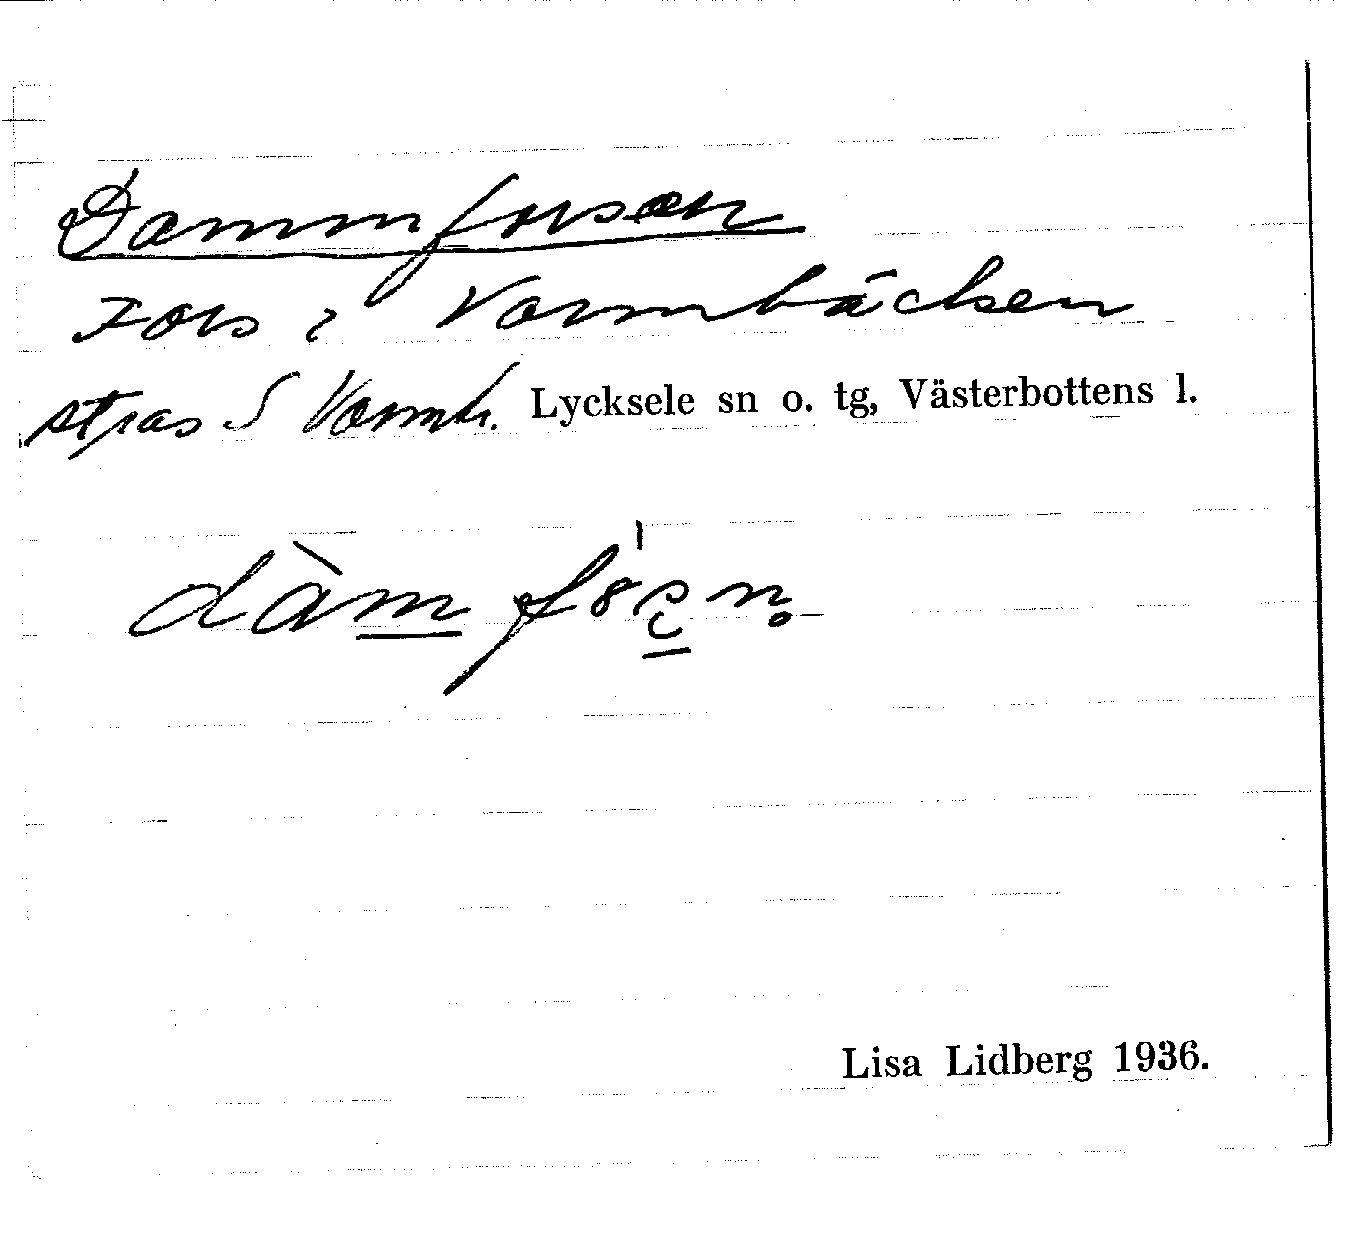 Dammforsen
Fors i Vormbäcken
strax S Vormtr. Lycksele sn o. tg, Västerbottens l.
Lisa Lidberg 1936.